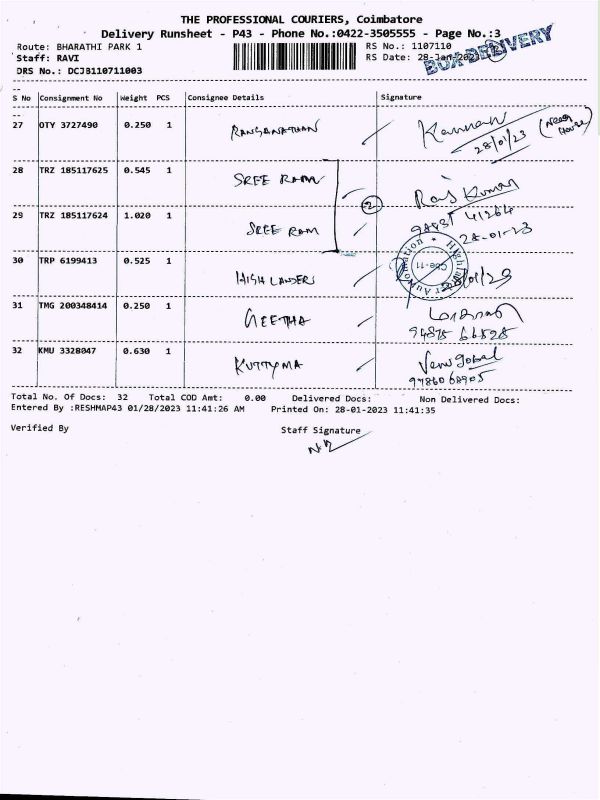 THE PROFESSIONAL COURIERS, Coimbatore
Delivery Runsheet - P43 - Phone No.:0422-3505555 - Page No.:3
Route: BHARATHI PARK 1 RS No.: 1107110
Staff: RAVI RS Date: 28-Jan-2023
DRS No.: DCJB110711003
BOX DELIVERY
S No Consignment No Weight PCS Consignee Details Signature
27 OTY 3727490 0.250 1 RANGANATHAN Kannan 28/01/23
28 TRZ 185117625 0.545 1 SREE RAM Raj Kumar
29 TRZ 185117624 1.020 1 SREE RAM 2 28-01-23
30 TRP 6199413 0.525 1 HIGH LANDERS
31 TMG 200348414 0.250 1 GEETHA 94875 66528
32 KMU 3328047 0.630 1 KUTTYMA Venu Gobal
Total No. Of Docs: 32 Total COD Amt: 0.00 Delivered Docs: Non Delivered Docs:
Entered By :RESHMAP43 01/28/2023 11:41:26 AM Printed On: 28-01-2023 11:41:35
Verified By Staff Signature